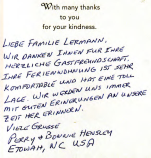 With many thanks
to you
for your kindness.
LIEBE FAMILIE LERMANN,
WIR DANKEN IHNEN FÜR IHRE
HERZLICHE GASTFREUNDSCHAFT.
IHRE FERIENWOHNUNG IST SEHR
KOMFORTABLE UND HAT EINE TOLL
LAGE. WIR WERDEN UNS IMMER
MIT GUTEN ERINERUNGEN AN UNSERE
ZEIT HER ERINNERN.
VIELE GRÜSSE
PERRY & BONNIE HENSLEY
ETOWAH, NC USA